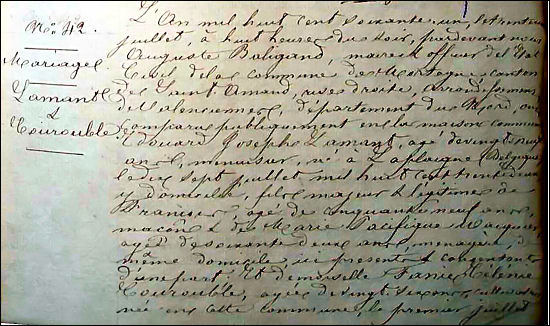 N° 42.
Mariage
Lamant
&
Couroublé
L'An mil huit cent soixante un, le trente
juillet, à huit heures du soir, pardevant nous
Auguste Baligand, maire & officier de l'Etat
Civil de la commune de Mortagne, canton
de Saint Amand, rive droite, arrondissement
de Valenciennes, département du Nord, ont
comparus publiquement en la maison commune
Edouard Joseph Lamant, agé de vingt neuf
ans, menuisier, né à Laplaigne, Belgique
le dix sept juillet mil huit cent trente deux
y domicilié, fils majeur & légitime de
François, agé de cinquante neuf ans,
maçon & de Marie Pacifique
agée de soixante deux ans, ménagère,
même domicile ici présents & consentants
d'une part. Et demoiselle Fanie
Couroublé, agée de vingt six ans,
née en cette commune, le premier juillet